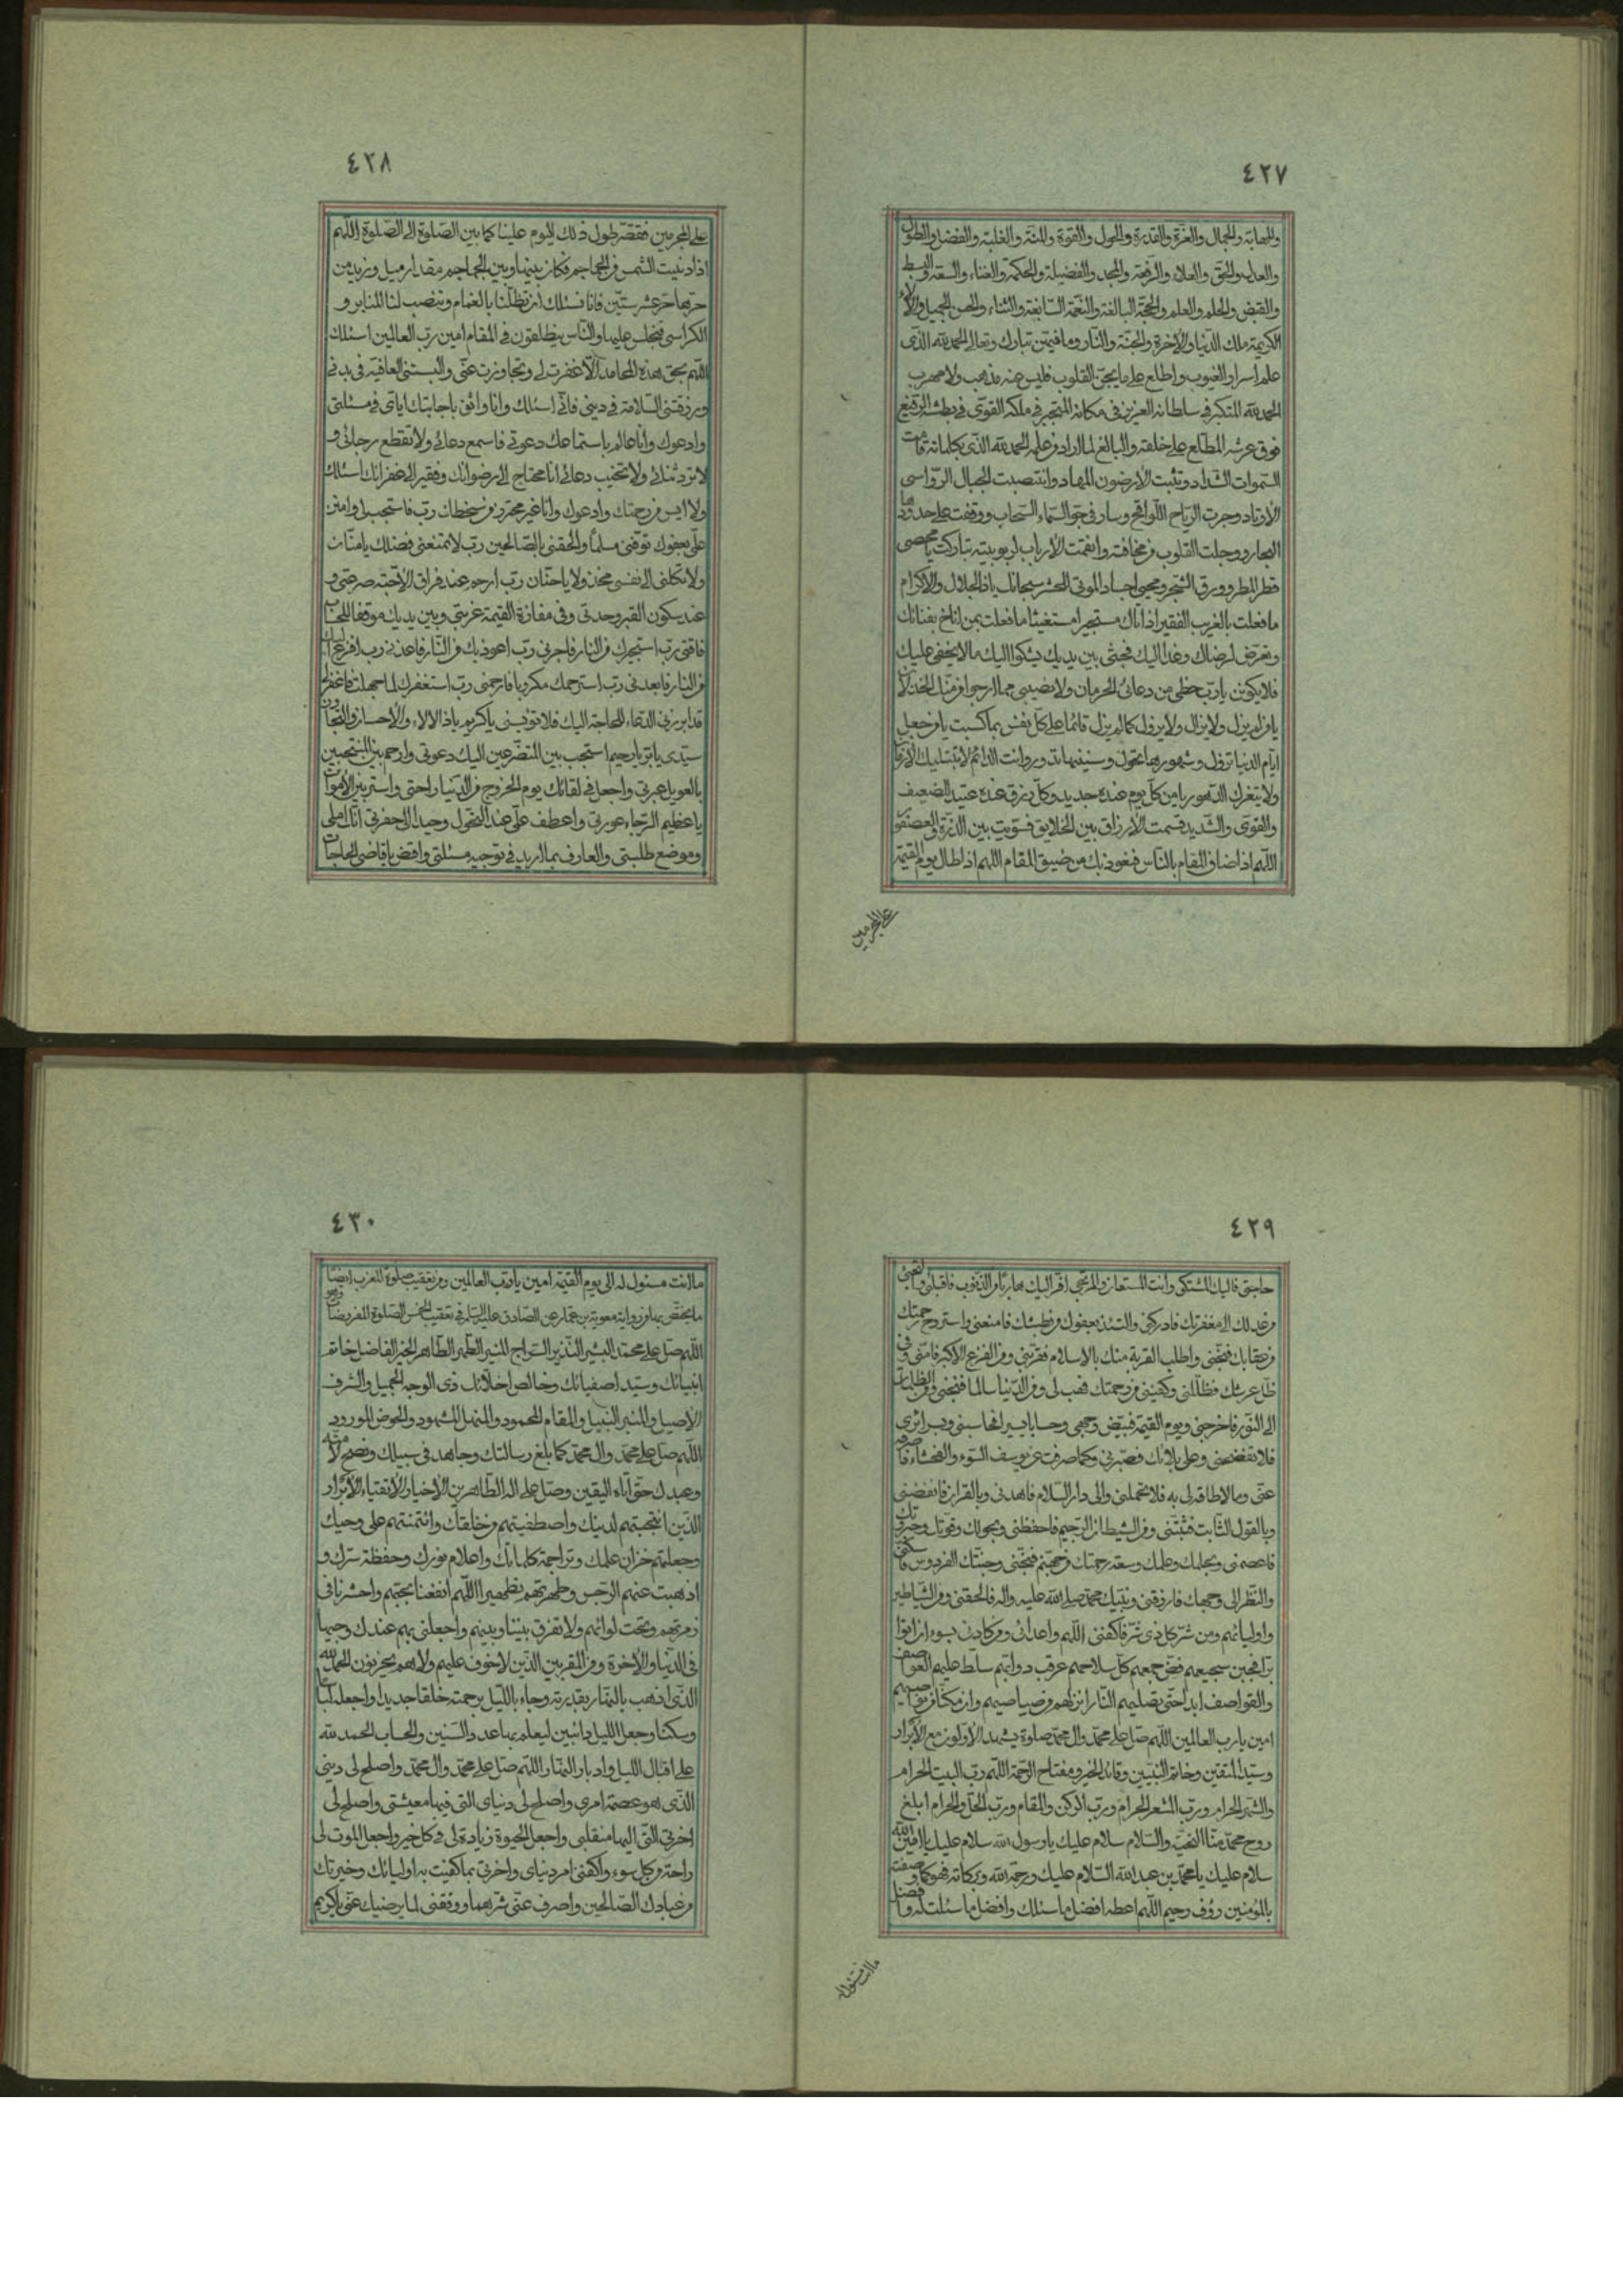 ٤٢٧
والمهابة والجمال والعزة والقدرة والحول والقوة والمنة والغلبة والفضل والطول
والعدل والحق والعلاء والرفعة والمجد والفضيلة والحكمة والغناء والسعة والبسط
والقبض والحلم والعلم والحجة البالغة والنعمة السابغة والثناء والحسن الجميل والآلاء
الكريمة ملك الدنيا والآخرة والجنة والنار وما فيهن تبارك وتعالى الحمد لله الذي
علم اسرار الغيوب واطلع على ما يجن القلوب فليس عنه مذهب ولا مهرب
الحمد لله المتكبر في سلطانه العزيز في مكانه المتجبر في ملكه القوي في بطشه الرفيع
فوق عرشه المطلع على خلقه والبالغ لما اراد من علمه الحمد لله الذي بكلماته قامت
السموات الشداد وثبتت الارضون المهاد وانتصبت الجبال الرواسي
الاوتاد وجرت الرياح اللواقح وسار في جو السماء السحاب ووقفت على حدودها
البحار ووجلت القلوب من مخافته وانقمعت الارباب لربوبيته تباركت يا محصي
قطر المطر وورق الشجر ومحيي اجساد الموتى للحشر سبحانك يا ذا الجلال والاكرام
ما فعلت بالغريب الفقير اذا اتاك مستجيرا مستغيثا ما فعلت بمن اناخ بفنائك
وتعرض لرضاك وغدا اليك فجثى بين يديك يشكوا اليك ما لا يخفى عليك
فلا يكونن يا رب حظي من دعائي الحرمان ولا نصيبي مما ارجوا منك الخذلان
يا من لم يزل ولا يزال ولا يزول كما لم يزل قائما على كل نفس بما كسبت يا من جعل
ايام الدنيا تزول وشهورها تحول وسنينها تدور وانت الدائم لا تبليك الازمان
ولا يتغرك الدهور يا من كل يوم عنده جديد وكل رزق عنده عتيد للضعيف
والقوي والشديد قسمت الارزاق بين الخلايق فسويت بين الذرة والعصفور
اللهم اذا ضاق المقام بالناس فنعوذ بك من ضيق المقام اللهم اذا طال يوم القيمة
على المجرمين
٤٢٨
على المجرمين فقصر طول ذلك اليوم علينا كما بين الصلوة الى الصلوة اللهم
اذا دنيت الشمس من الجماجم فكان بينها وبين الجماجم مقدار ميل وزيد من
حرها حر عشر سنين فانا نسئلك ان تظلنا بالغمام وتنصب لنا المنابر و
الكراسي فنجلس عليها والناس ينطلقون في المقام امين رب العالمين اسئلك
اللهم بحق هذه المحامد الا غفرت لي وتجاوزت عني والبستني العافية في بدني
ورزقتني السلامة في ديني فاني اسئلك وانا واثق باجابتك اياي في مسئلتي
وادعوك وانا عالم باستماعك دعوتي فاسمع دعائي ولا تقطع رجائي و
لا ترد ثنائي ولا تخيب دعائي انا محتاج الى رضوانك وفقير الى غفرانك اسئلك
ولا ايس من رحمتك وادعوك وانا غير محترز من سخطك رب فاستجب لي وامنن
علي بعفوك توفني مسلما والحقني بالصالحين رب لا تمنعني فضلك يا منان
ولا تكلني الى نفسي مخذولا يا حنان رب ارحم عند فراق الاحبة صرعتي و
عند سكون القبر وحدتي وفي مفازة القيمة غربتي وبين يديك موقفا للحساب
فاقتي رب استجيرك من النار فاجرني رب اعوذ بك من النار فاعذني رب افزع اليك
من النار فابعدني رب استرحمك مكروبا فارحمني رب استغفرك لما جهلت فاغفر لي
قد ابرزني الدعاء للحاجة اليك فلا تؤيسني يا كريم يا ذا الالاء والاحسان والتجاوز
سيدي يا بر يا رحيم استجب بين المتضرعين اليك دعوتي وارحم بين المنتحبين
بالعويل عبرتي واجعل في لقائك يوم الخروج من الدنيا راحتي واستر بين الاموات
يا عظيم الرجاء عورتي واعطف علي عند التحول وحيدا الى حفرتي انك املي
وموضع طلبتي والعارف بما اريد في توجيه مسئلتي واقض يا قاضي الحاجات
٤٢٩
حاجتي فاليك المشتكى وانت المستعان والمرتجى افر اليك هاربا من الذنوب فاقبلني والتجئ
من عدلك الى مغفرتك فادركني والتئذ بعفوك من بطشك فامنعني واستروح رحمتك
من عقابك فنجني واطلب القربة منك بالاسلام فقربني ومن الفزع الاكبر فامني وفي
ظل عرشك فظللني وكفلين من رحمتك فهب لي ومن الدنيا سالما فنجني ومن الظلمات
الى النور فاخرجني ويوم القيمة فبيض وجهي وحسابا يسيرا فحاسبني وبسرائري
فلا تفضحني وعلى بلائك فصبرني وكما صرفت عن يوسف السوء والفحشاء فاصرفه
عني وما لا طاقة لي به فلا تحملني والى دار السلام فاهدني وبالقران فانفعني
وبالقول الثابت فثبتني ومن الشيطان الرجيم فاحفظني وبحولك وقوتك وجبروتك
فاعصمني وبحلمك وعلمك وسعة رحمتك من جهنم فنجني وجنتك الفردوس فاسكني
والنظر الى وجهك فارزقني وبنبيك محمد صلى الله عليه واله فالحقني ومن الشياطين
واوليائهم ومن شر كل ذي شر فاكفني اللهم واعدائي ومن كادني بسوء ان اتوا
برا فجبن شجيعهم فض جمعهم كلل سلاحهم عرقب دوابهم سلط عليهم العواصف
والقواصف ابدا حتى تصليهم النار انزلهم من صياصيهم وامكنا من نواصيهم
امين يا رب العالمين اللهم صل على محمد وال محمد صلوة يشهد الاولون مع الابرار
وسيد المتقين وخاتم النبيين وقائد الخير ومفتاح الرحمة اللهم رب البيت الحرام
والشهر الحرام ورب المشعر الحرام ورب الركن والمقام ورب الحل والحرام ابلغ
روح محمد منا التحية والسلام سلام عليك يا رسول الله سلام عليك يا امين الله
سلام عليك يا محمد بن عبد الله السلام عليك ورحمة الله وبركاته فهو كما وصفته
بالمؤمنين رؤف رحيم اللهم اعطه افضل ما سئلك وافضل ما سئلت له وافضل
ما انت مسئول له
٤٣٠
ما انت مسئول له الى يوم القيمة امين يا رب العالمين ومن تعقيب صلوة المغرب ايضا
ما يختص بها من رواية معوية بن عمار عن الصادق عليه السلام في تعقيب الخمس الصلوة المفروضات وهو
اللهم صل على محمد البشير النذير السراج المنير الطهر الطاهر الخير الفاضل خاتم
انبيائك وسيد اصفيائك وخالص اخلائك ذي الوجه الجميل والشرف
الاصيل والمنبر النبيل والمقام المحمود والمنهل المشهود والحوض المورود
اللهم صل على محمد وال محمد كما بلغ رسالتك وجاهد في سبيلك ونصح لامته
وعبدك حتى اتاه اليقين وصل على اله الطاهرين الاخيار الاتقياء الابرار
الذين انتجبتهم لدينك واصطفيتهم من خلقك وائتمنتهم على وحيك
وجعلتهم خزان علمك وتراجمة كلماتك واعلام نورك وحفظة سرك و
اذهبت عنهم الرجس وطهرتهم تطهيرا اللهم انفعنا بحبهم واحشرنا في
زمرتهم وتحت لوائهم ولا تفرق بيننا وبينهم واجعلني بهم عندك وجيها
في الدنيا والاخرة ومن المقربين الذين لا خوف عليهم ولا هم يحزنون الحمد لله
الذي اذهب بالنهار بقدرته وجاء بالليل برحمته خلقا جديدا وجعله لباسا
وسكنا وجعل الليل دائبين ليعلم بها عدد السنين والحساب الحمد لله
على اقبال الليل وادبار النهار اللهم صل على محمد وال محمد واصلح لي ديني
الذي هو عصمة امري واصلح لي دنياي التي فيها معيشتي واصلح لي
اخرتي التي اليها منقلبي واجعل الحيوة زيادة لي في كل خير واجعل الموت لي
راحة من كل سوء واكفني امر دنياي واخرتي بما كفيت به اوليائك وخيرتك
من عبادك الصالحين واصرف عني شرهما ووفقني لما يرضيك عني يا كريم